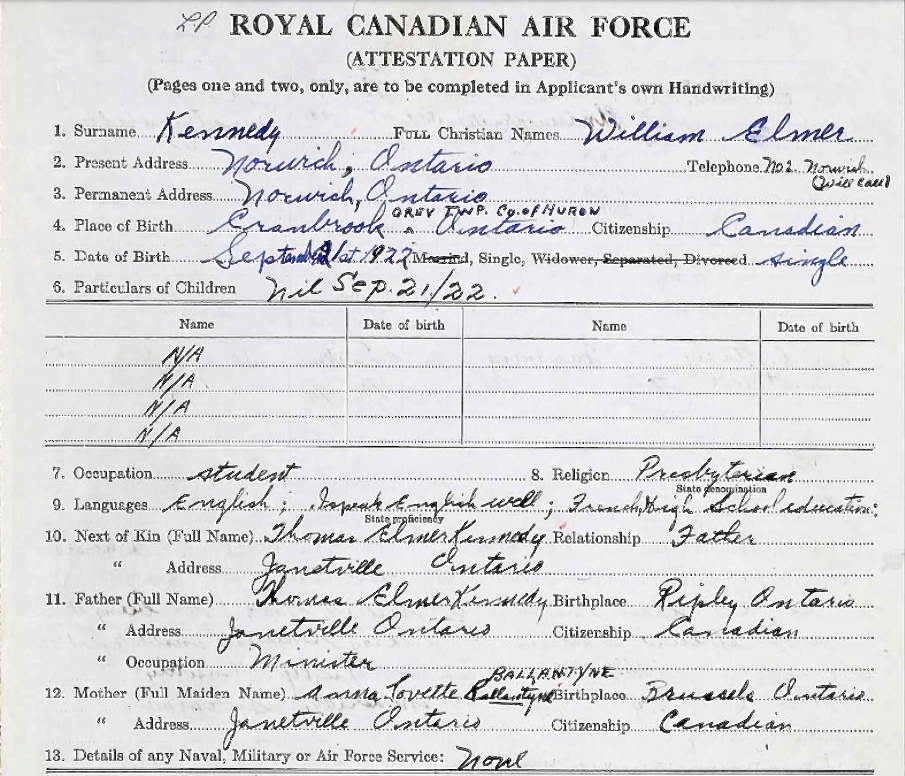 L.P. ROYAL CANADIAN AIR FORCE
(ATTESTATION PAPER)
(Pages one and two, only, are to be completed in Applicant's own Handwriting)
1. Surname Kennedy FULL Christian Names William Elmer
2. Present Address Norwich, Ontario Telephone No 2 Norwich
(will call)
3. Permanent Address Norwich, Ontario
GREY TWP. Co. of HURON
4. Place of Birth Cranbrook ^ Ontario Citizenship Canadian
5. Date of Birth September 21st 1922 Married, Single, Widower, Separated, Divorced. single
6. Particulars of Children Nil Sep. 21/22.
Name Date of birth Name Date of birth
N/A
N/A
N/A
N/A
7. Occupation student 8. Religion Presbyterian
State denomination
9. Languages English; I speak English well; French, High School education:
State proficiency
10. Next of Kin (Full Name) Thomas Elmer Kennedy Relationship Father
" Address Janetville Ontario
11. Father (Full Name) Thomas Elmer Kennedy Birthplace Ripley Ontario
" Address Janetville Ontario Citizenship Canadian
" Occupation Minister
BALLANTYNE
12. Mother (Full Maiden Name) Anna Lovette Ballantyne Birthplace Brussels Ontario
" Address Janetville Ontario Citizenship Canadian
13. Details of any Naval, Military or Air Force Service: None